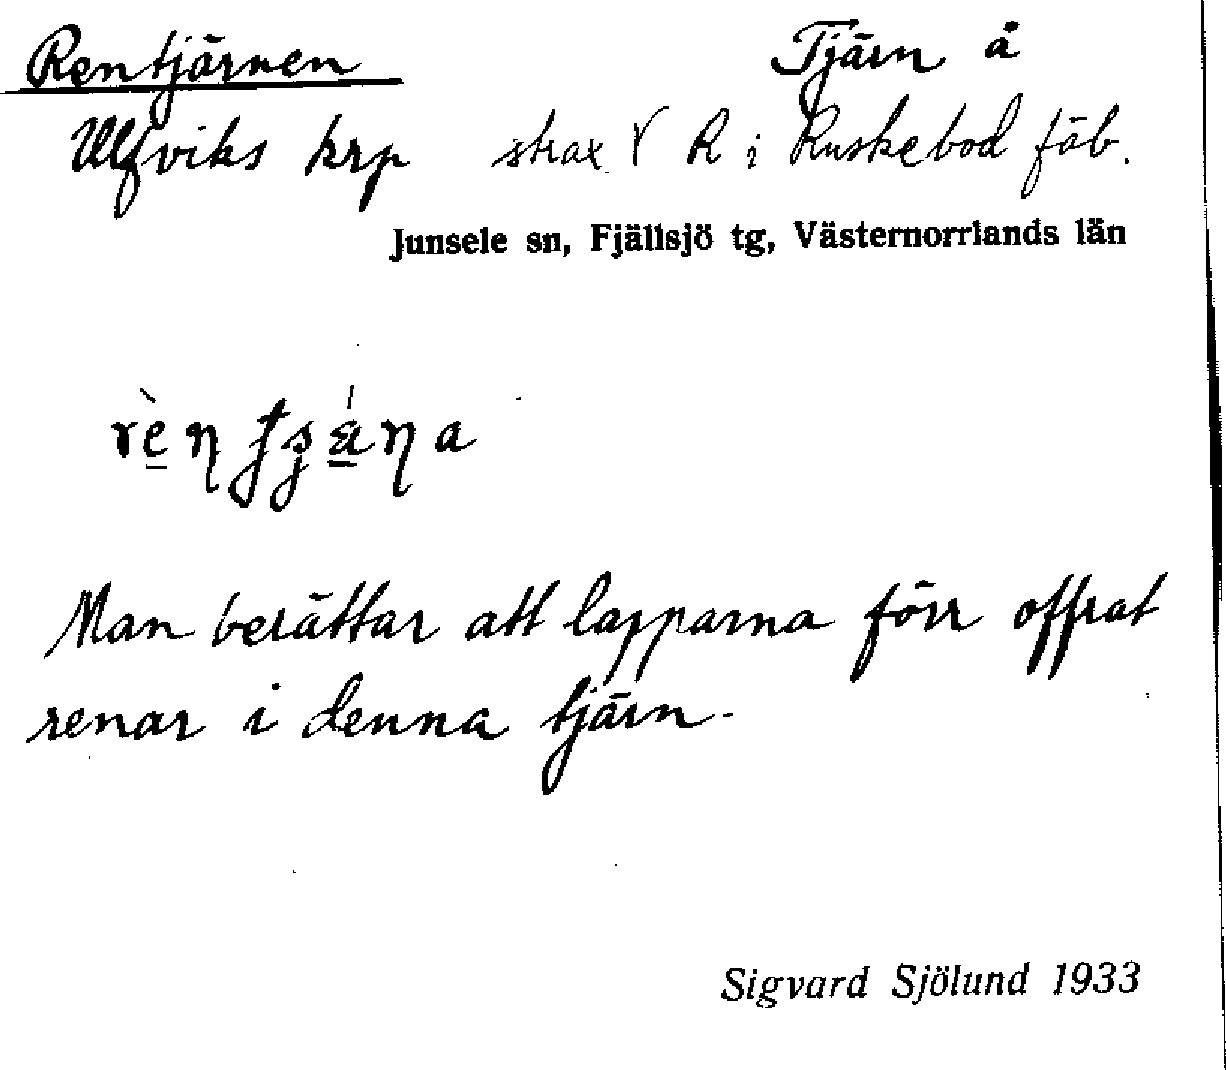 Rentjärnen Tjärn å
Ulfviks krp strax V R i Ruskebod fäb.
Junsele sn, Fjällsjö tg, Västernorrlands län
Man berättar att lapparna förr offrat
renar i denna tjärn.
Sigvard Sjölund 1933